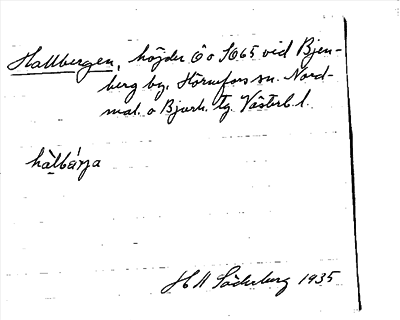 Hallbergen, höjder Ö o SO 65 vid Bjen-
berg by. Hörnefors sn. Nord-
mal. o Bjurh. tg. Västerb. l.
hàlbárja
H A Söderberg 1935